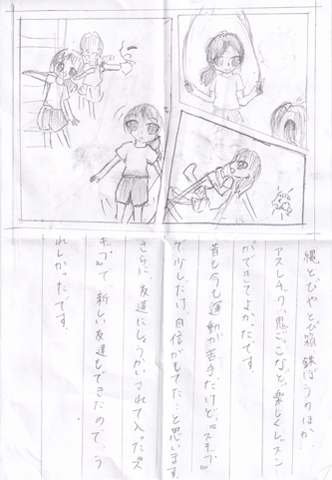 縄とびやとび箱、鉄ぼうのほか、
アスレチック、鬼ごっこなど、楽しくレッスン
ができてよかったです。
昔も今も運動が苦手だけど、"スキップ"
で少しだけ、自信がもてた、と思います。
さらに、友達にしょうかいされて入った"ス
キップ"で、新しい友達もできたので、う
れしかったです。